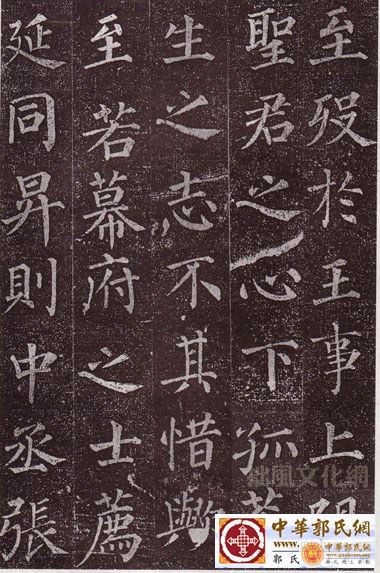 至歿於王事上
聖君之心下孤
生之志不其惜歟
至若幕府之士薦
延同昇則中丞張
風文化網
中華郭氏網
www.
郭氏
中華郭氏網